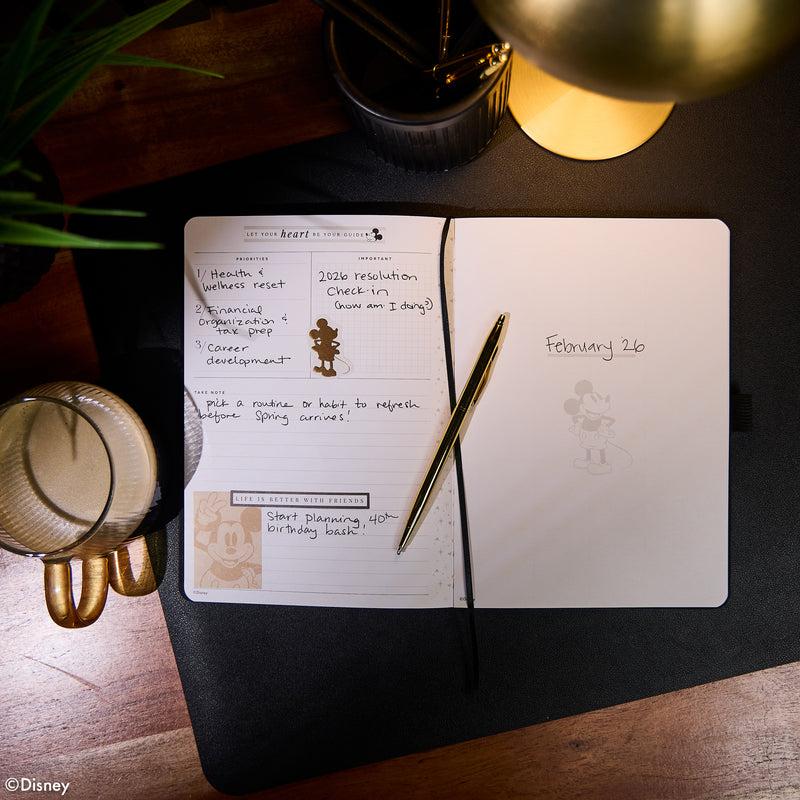 LET YOUR heart BE YOUR GUIDE
PRIORITIES
1/ Health &
Wellness reset
2/ Financial
Organization &
tax prep
3/ Career
development
IMPORTANT
2026 resolution
Check-in
(how am I doing?)
TAKE NOTE
pick a routine or habit to refresh
before Spring arrives!
LIFE IS BETTER WITH FRIENDS
Start planning 40th
birthday bash!
©Disney
February 26
©Disney